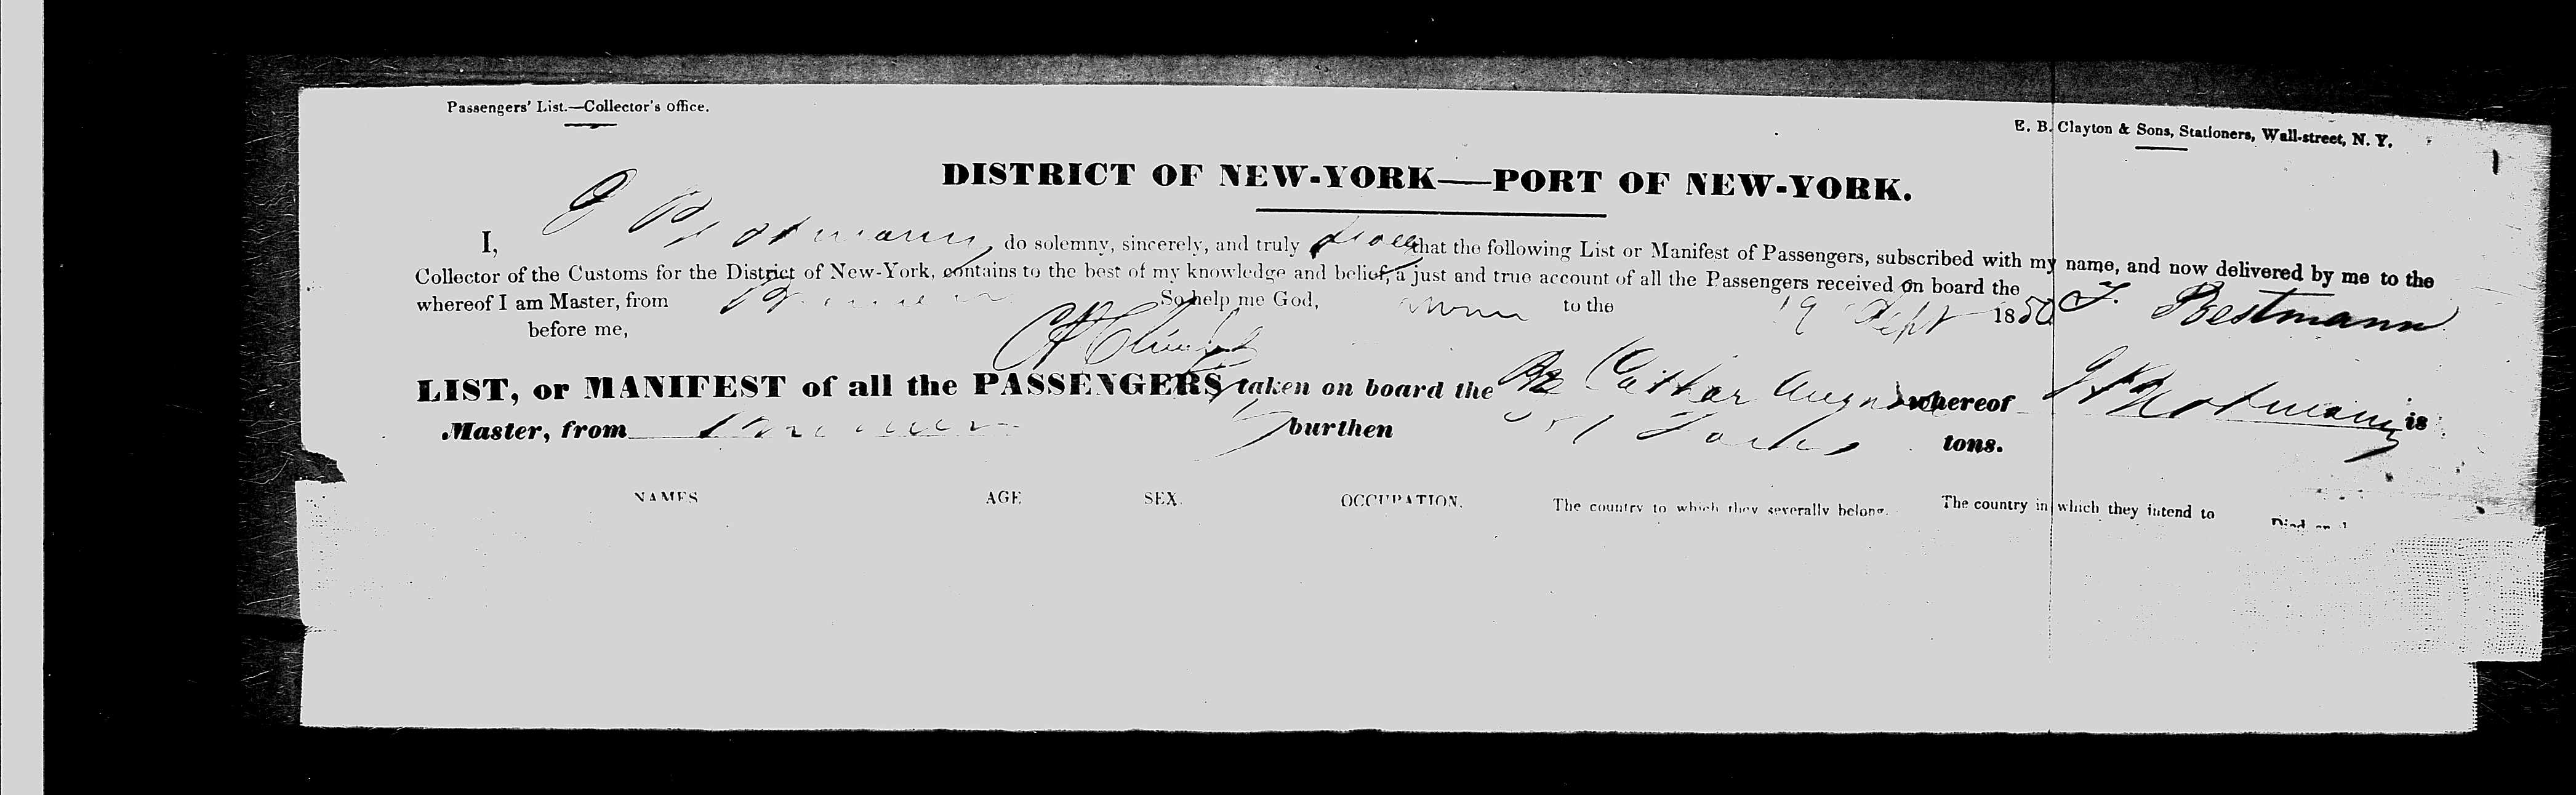 Passengers' List.—Collector's office.
E. B. Clayton & Sons, Stationers, Wall-street, N. Y.
DISTRICT OF NEW-YORK—PORT OF NEW-YORK.
I, do solemny, sincerely, and truly that the following List or Manifest of Passengers, subscribed with my name, and now delivered by me to the
Collector of the Customs for the District of New-York, contains to the best of my knowledge and belief, a just and true account of all the Passengers received on board the
whereof I am Master, from Bremen So help me God, to the 19 Sept 1850 Bestmann
before me,
LIST, or MANIFEST of all the PASSENGERS taken on board the whereof is
Master, from Bremen burthen tons.
NAMES AGE SEX. OCCUPATION. The country to which they severally belong. The country in which they intend to Died on